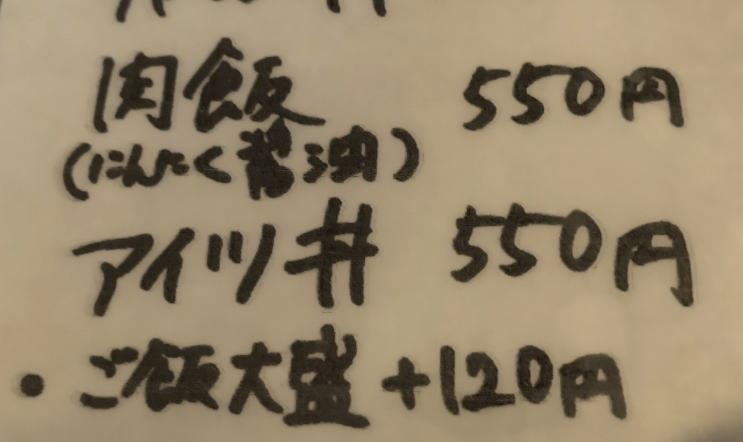 肉飯 550円
(にんにく醤油)
アイツ丼 550円
・ご飯大盛+120円